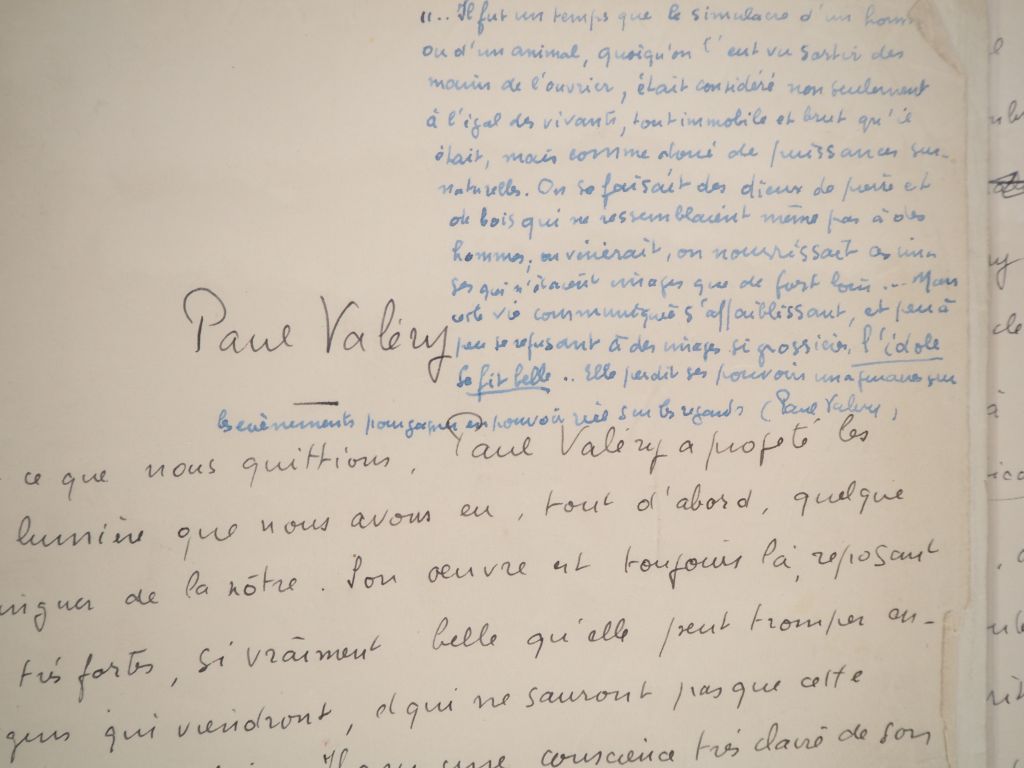 "... Il fut un temps que le simulacre d'un hom
ou d'un animal, quoiqu'on l'eut vu sortir des
mains de l'ouvrier, était considéré non seulement
à l'égal des vivants, tout immobile et brut qu'il
était, mais comme doué de puissances sur-
naturelles. On se faisait des dieux de pierre et
de bois qui ne ressemblaient même pas à des
hommes, on vénérait, on nourrissait ces ima-
ges qui n'étaient images que de fort loin ... Mais
cette vie communiquée s'affaiblissant, et peu à
peu se refusant à des images si grossières, l'idole
se fit belle .. Elle perdit ses pouvoirs imaginaires sur
les evènements pour gagner en pouvoir réel sur les regards (Paul Valéry)
Paul Valéry
ce que nous quittions. Paul Valéry a projeté les
lumière que nous avons eu, tout d'abord, quelque
de la nôtre. Son oeuvre est toujours là, reposant
très fortes, si vraiment belle qu'elle peut tromper en-
gens qui viendront, et qui ne sauront pas que cette
une conscience très claire de son